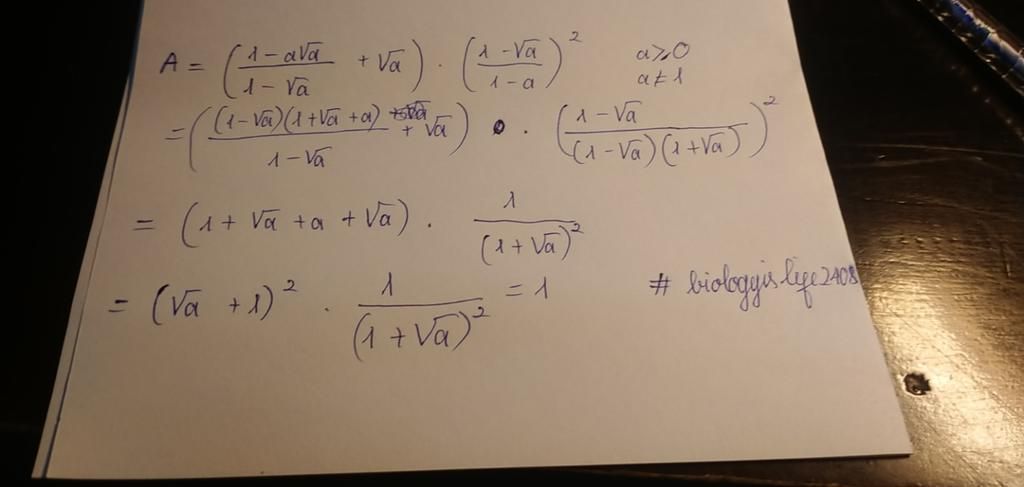 A = ( (1 − a√a)/(1 − √a) + √a ) · ( (1 − √a)/(1 − a) )² a ≥ 0
a ≠ 1
= ( ((1 − √a)(1 + √a + a))/(1 − √a) + √a ) · ( (1 − √a)/((1 − √a)(1 + √a)) )²
= (1 + √a + a + √a) · 1/(1 + √a)²
= (√a + 1)² · 1/(1 + √a)² = 1 # biologyislife2408